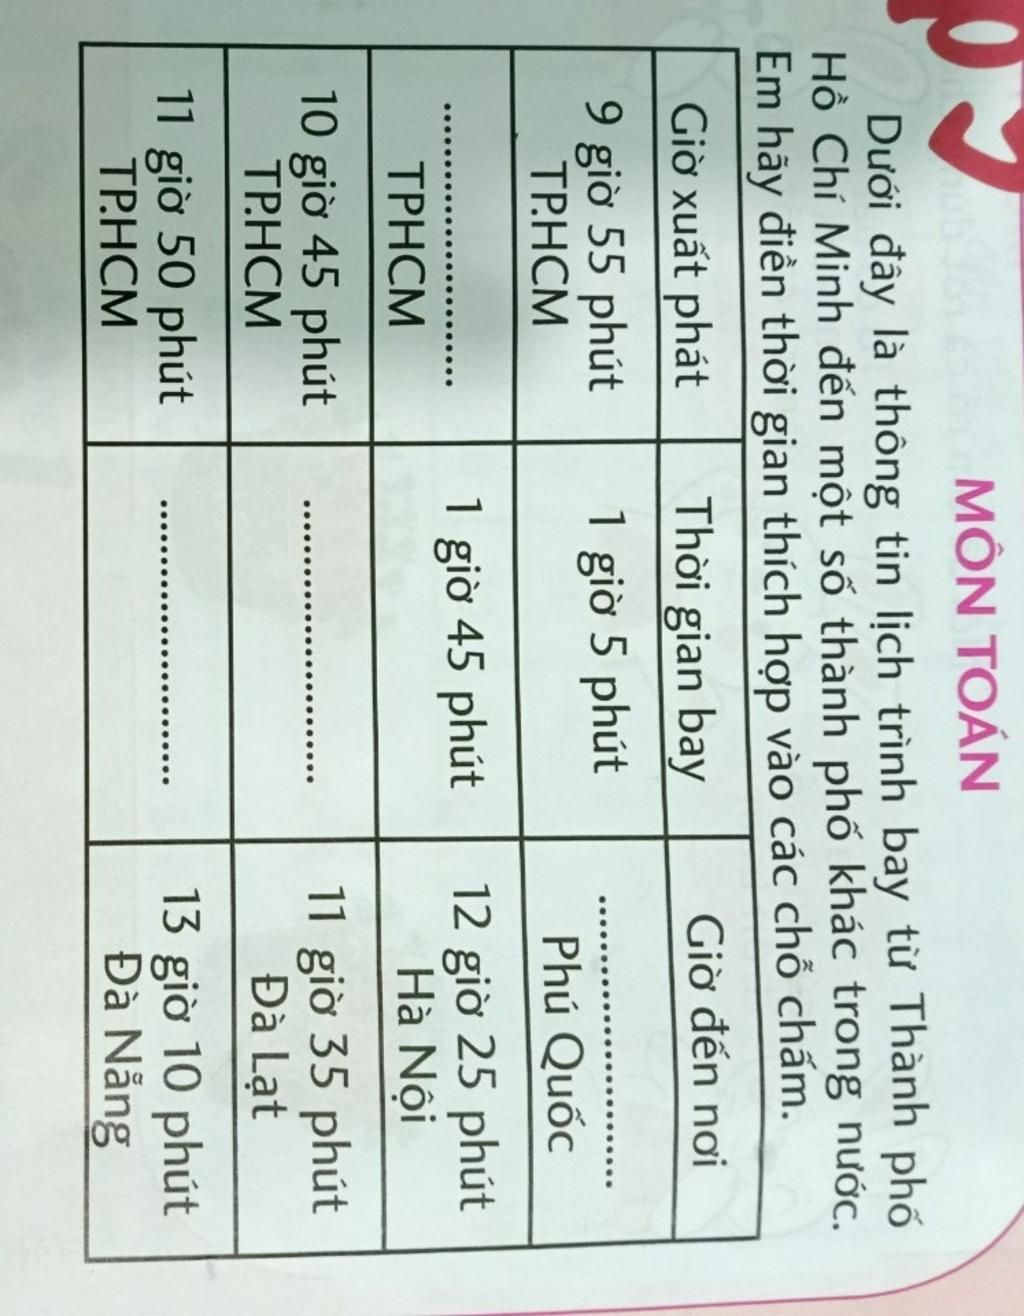 MÔN TOÁN
Dưới đây là thông tin lịch trình bay từ Thành phố
Hồ Chí Minh đến một số thành phố khác trong nước.
Em hãy điền thời gian thích hợp vào các chỗ chấm.
Giờ xuất phát
Thời gian bay
Giờ đến nơi
9 giờ 55 phút
TP.HCM
1 giờ 5 phút
..............................
Phú Quốc
..............................
TPHCM
1 giờ 45 phút
12 giờ 25 phút
Hà Nội
10 giờ 45 phút
TP.HCM
..............................
11 giờ 35 phút
Đà Lạt
11 giờ 50 phút
TP.HCM
..............................
13 giờ 10 phút
Đà Nẵng